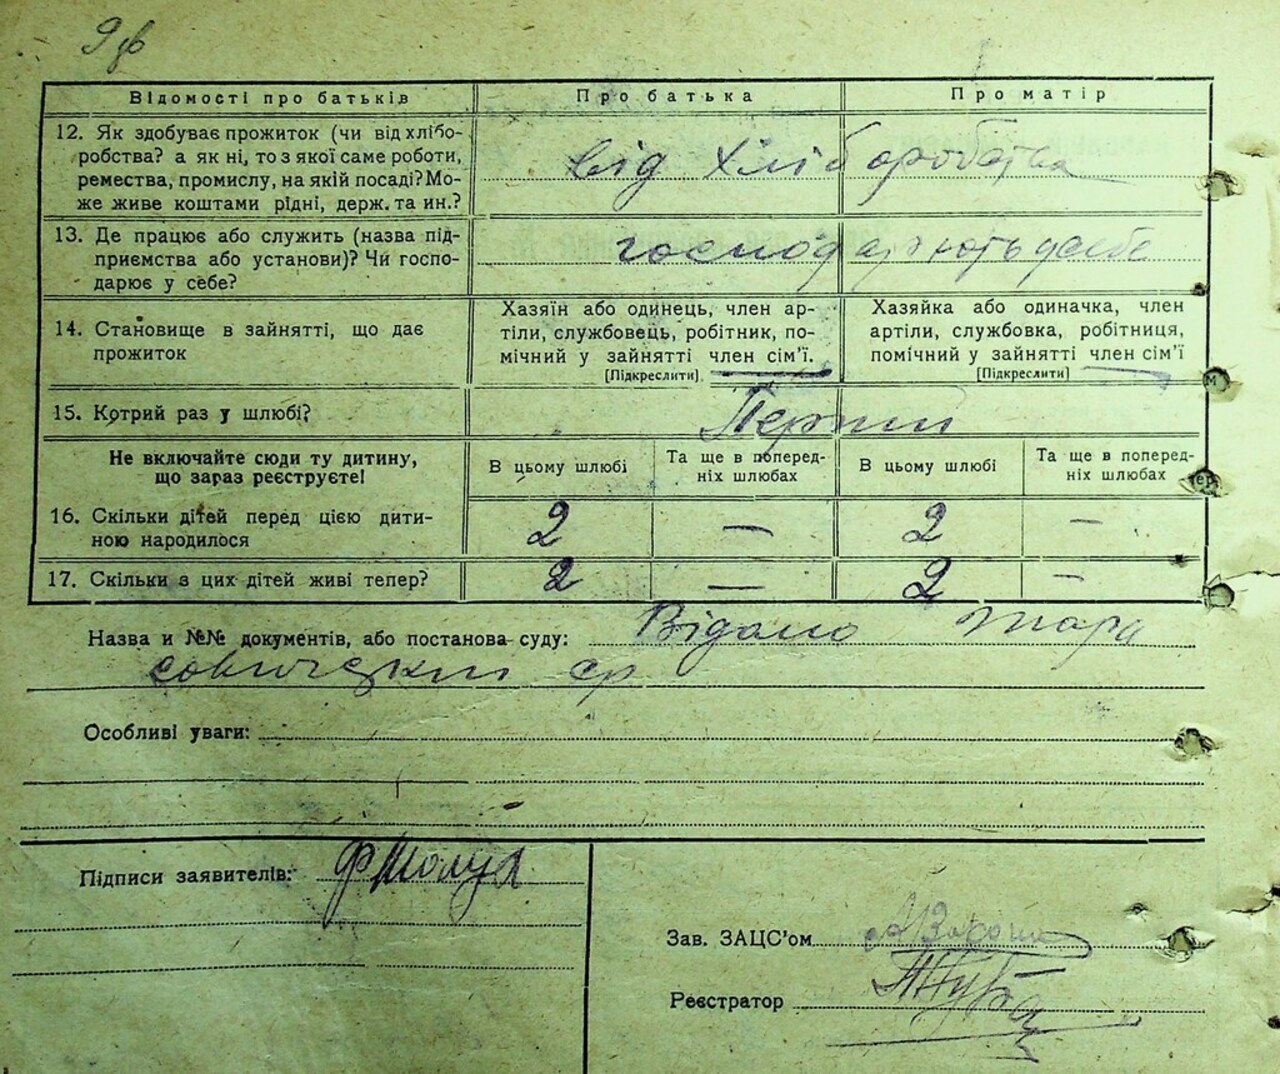 9 зв
Відомості про батьків Про батька Про матір
12. Як здобуває прожиток (чи від хлібо-
робства? а як ні, то з якої саме роботи,
ремества, промислу, на якій посаді? Мо-
же живе коштами рідні, держ. та ин.?
від хліборобства
13. Де працює або служить (назва під-
приємства або установи)? Чи госпо-
дарює у себе?
господарюють у себе
14. Становище в зайнятті, що дає
прожиток
Хазяїн або одинець, член ар-
тіли, службовець, робітник, по-
мічний у зайнятті член сім'ї.
[Підкреслити]
Хазяйка або одиначка, член
артіли, службовка, робітниця,
помічний у зайнятті член сім'ї
[Підкреслити]
15. Котрий раз у шлюбі?
Перший
Не включайте сюди ту дитину,
що зараз реєструєте!
В цьому шлюбі
Та ще в поперед-
ніх шлюбах
В цьому шлюбі
Та ще в поперед-
ніх шлюбах
16. Скільки дітей перед цією дити-
ною народилося
2 — 2 —
17. Скільки з цих дітей живі тепер?
2 — 2 —
Назва и №№ документів, або постанова суду: Відомо
ср
Особливі уваги:
Підписи заявителів:
Зав. ЗАЦС'ом
Реєстратор